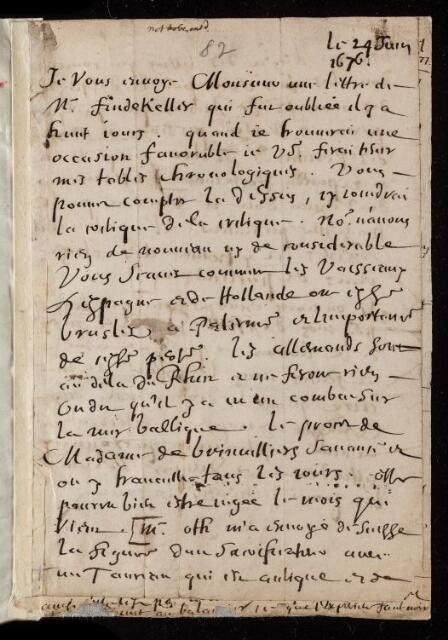 82
le 24 Juin
1676.
Je Vous envoye Monsieur une lettre de
Mr. FindeKeller qui fut oubliée il y a
huit iours. quand ie trouverai une
occasion favorable ie Vs.
mes tables chronologiques. Vous
pouvez compter la dessus,
la critique de la critique. Ns. n'avons
rien de nouveau ny de considerable
Vous scavez comment les Vaisseaux
d'Espagne et de Hollande ont esté
bruslez a Palerme et l'importance
de cette perte. les allemands sont
au dela du Rhin et ne feront rien
on dit qu'il y a eu un combat sur
la mer baltique. le procez de
Madame de brinvilliers s'avance et
on y travaille tous les iours. elle
pourra bien estre iugée le mois qui
vient. Mr. oth m'a envoyé de Suisse
la figure d'un Sacrificateur avec
un Taureau qui est antique et de